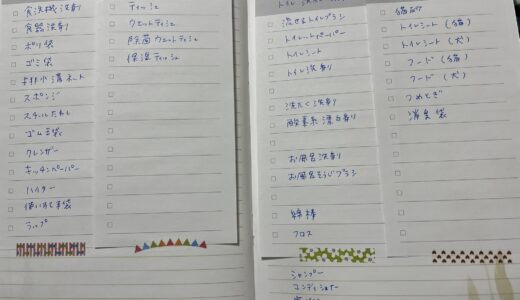 食洗機洗剤
食器洗剤
ポリ袋
ゴミ袋
排水溝ネット
スポンジ
スチールたわし
ゴム手袋
クレンザー
キッチンペーパー
ハイター
使いすて手袋
ラップ
ティッシュ
ウエットティシュ
除菌ウエットティシュ
保湿ティッシュ
流せるトイレブラシ
トイレットペーパー
トイレシート
トイレ洗剤
洗たく洗剤
酸素系漂白剤
お風呂洗剤
お風呂そうじブラシ
綿棒
フロス
シャンプー
コンディショナー
猫砂
トイレシート（猫）
トイレシート（犬）
フード（猫）
フード（犬）
つめとぎ
消臭袋